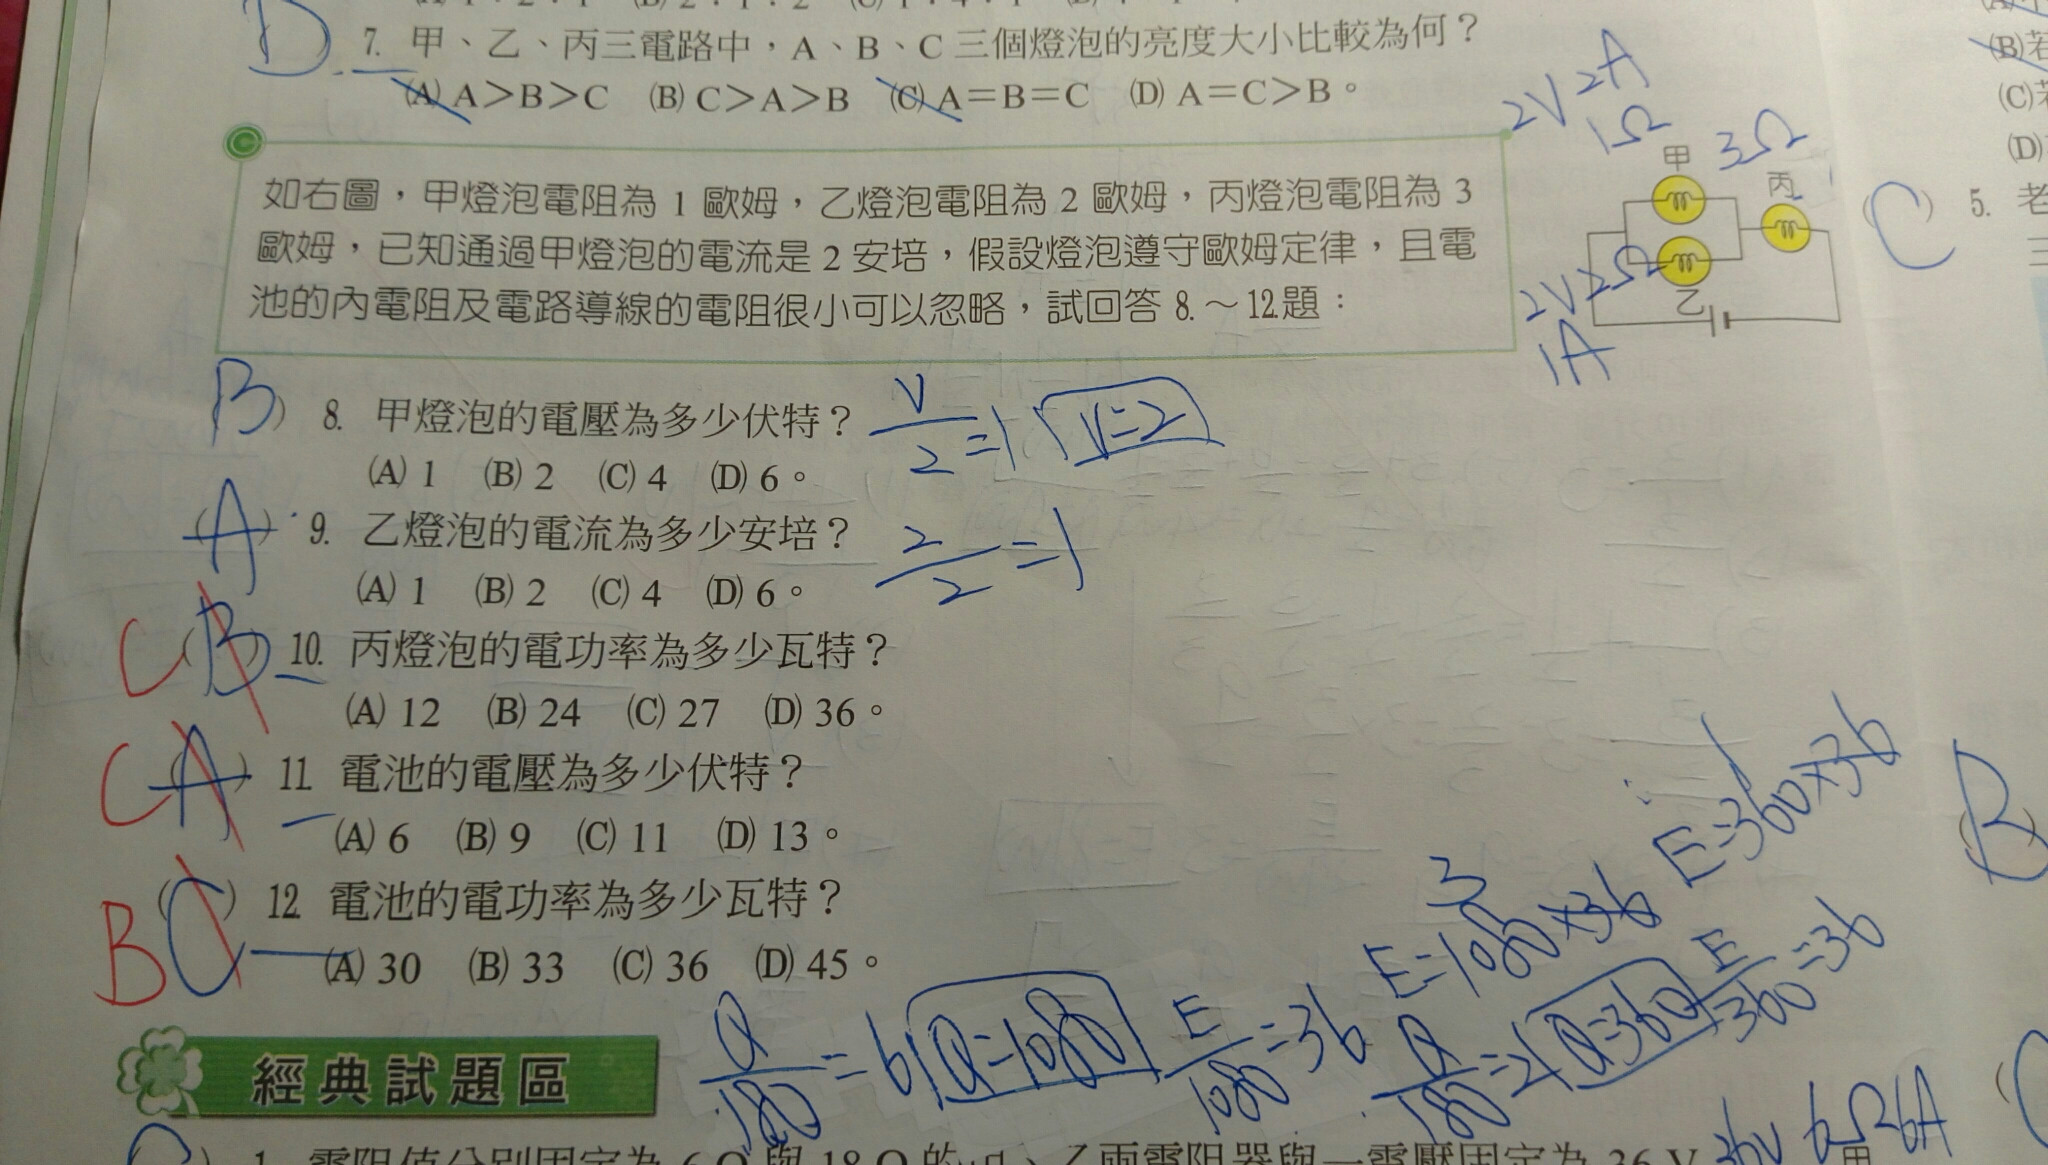 D 7. 甲、乙、丙三電路中，A、B、C 三個燈泡的亮度大小比較為何？
(A) A＞B＞C (B) C＞A＞B (C) A＝B＝C (D) A＝C＞B。
如右圖，甲燈泡電阻為 1 歐姆，乙燈泡電阻為 2 歐姆，丙燈泡電阻為 3
歐姆，已知通過甲燈泡的電流是 2 安培，假設燈泡遵守歐姆定律，且電
池的內電阻及電路導線的電阻很小可以忽略，試回答 8.～12.題：
2V 2A
1Ω 3Ω
甲
丙
2V 2Ω
乙
1A
(B) 8. 甲燈泡的電壓為多少伏特？ V/2=1 V=2
(A) 1 (B) 2 (C) 4 (D) 6。
(A) 9. 乙燈泡的電流為多少安培？ 2/2=1
(A) 1 (B) 2 (C) 4 (D) 6。
C (B) 10. 丙燈泡的電功率為多少瓦特？
(A) 12 (B) 24 (C) 27 (D) 36。
C (A) 11. 電池的電壓為多少伏特？
(A) 6 (B) 9 (C) 11 (D) 13。
B (C) 12. 電池的電功率為多少瓦特？
(A) 30 (B) 33 (C) 36 (D) 45。
E=360×36
3
E=1080×36
Q/180=6 Q=1080 E/1080=36 Q/180=2 Q=360 E/360=36
經典試題區
36V 6Ω 6A
甲
1. 電阻值分別固定為 6 Ω 與 18 Ω 的甲、乙兩電阻器與一電壓固定為 36 V
(B)若
(C)若
(D)
C 5. 老
三
B